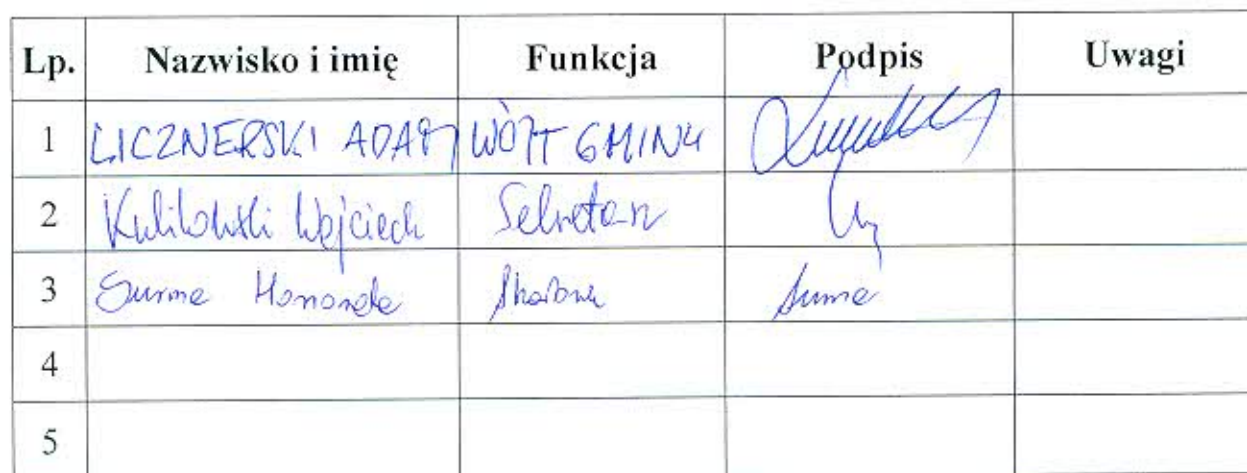 Lp. Nazwisko i imię Funkcja Podpis Uwagi
1 LICZNERSKI ADAM WÓJT GMINY
2 Kulikowski Wojciech Sekretarz
3 Surma Skarbnik Surma
4
5